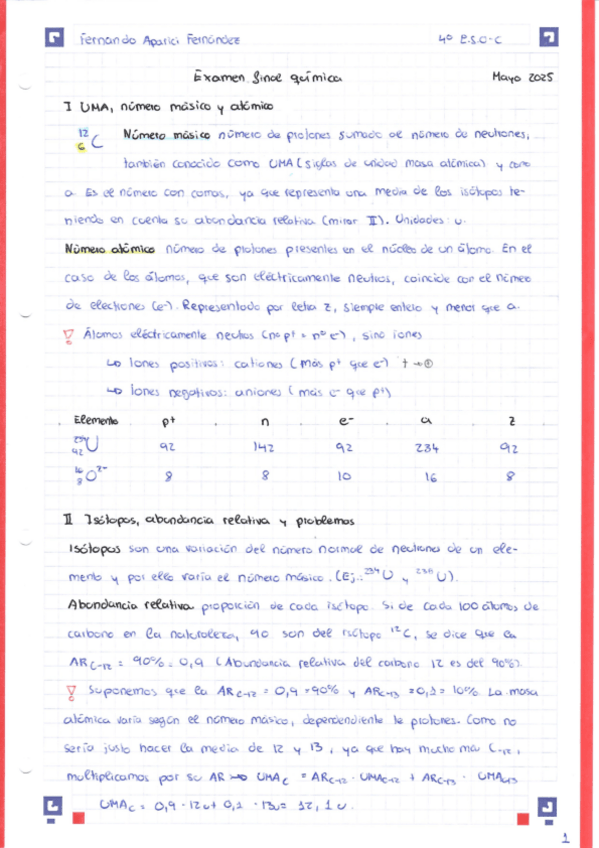 Fernando Aparici Fernández 4º E.S.O-C
Examen final química Mayo 2025
I UMA, número másico y atómico
12 6 C Número másico número de protones sumado al número de neutrones,
también conocido como UMA (siglas de unidad masa atómica) y como
a. Es el número con comas, ya que representa una media de los isótopos te-
niendo en cuenta su abundancia relativa (mirar II). Unidades: u.
Número atómico número de protones presentes en el núcleo de un átomo. En el
caso de los átomos, que son eléctricamente neutros, coincide con el número
de electrones (e-). Representado por letra z, siempre entero y menor que a.
! Átomos eléctricamente neutros (nº p+ = nº e-), sino iones
↳ Iones positivos: cationes (más p+ que e-) t → ⊕
↳ Iones negativos: aniones (más e- que p+)
Elemento p+ n e- a z
234 92 U 92 142 92 234 92
16 8 O 2- 8 8 10 16 8
II Isótopos, abundancia relativa y problemas
Isótopos son una variación del número normal de neutrones de un ele-
mento y por ello varía el número másico. (Ej.: 234U y 238U).
Abundancia relativa proporción de cada isótopo. Si de cada 100 átomos de
carbono en la naturaleza, 90 son del isótopo 12C, se dice que la
AR C-12 = 90% = 0,9 (Abundancia relativa del carbono 12 es del 90%).
! Suponemos que la AR C-12 = 0,9 = 90% y AR C-13 = 0,1 = 10%. La masa
atómica varía según el número másico, dependendiente protones. Como no
sería justo hacer la media de 12 y 13, ya que hay mucho más C-12,
multiplicamos por su AR → UMA C = AR C-12 · UMA C-12 + AR C-13 · UMA C-13
UMA C = 0,9 · 12u + 0,1 · 13u = 12,1 u.
1